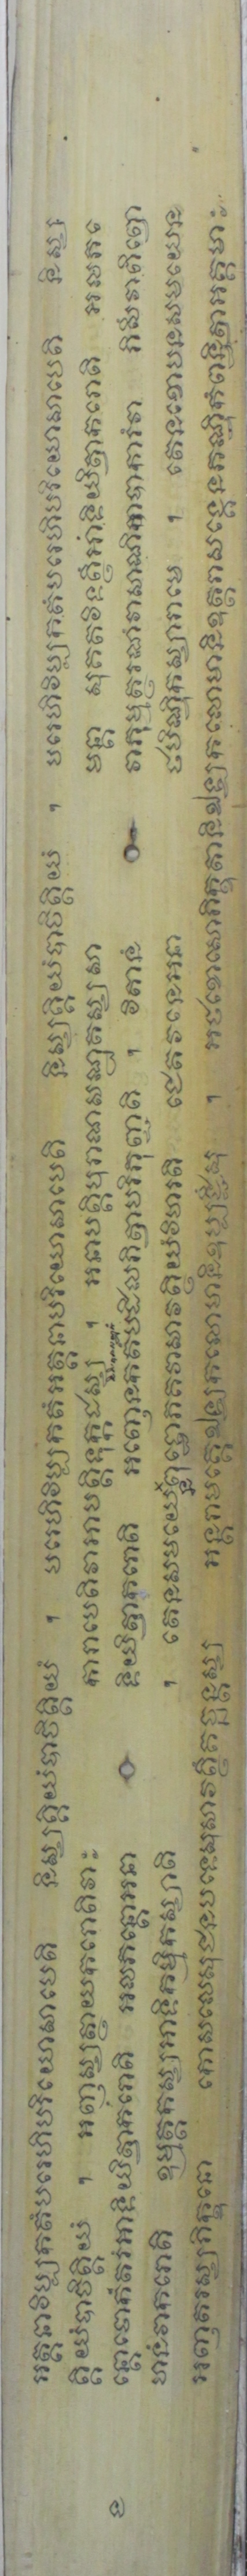 អត្តនាវិប្បកតំបរេហិបរិយោសាបេតិ និស្សគ្គិយំបាចិត្តិយំ ។ បរេហិវិប្បកតំអត្តនាបរិយោសាបេតិ និស្សគ្គិយំបាចិត្តិយំ ។ បរេហិវិប្បកតំបរេហិបរិយោសាបេតិ និស្ស
គ្គិយំបាចិត្តិយំ ។ អញ្ញស្សត្ថាយករោតិវាះ ការាបេតិវាអាបត្តិទុក្កដស្ស ។ អនាបត្តិបុរាណសណ្ឋតស្សសា មន្តា សុគតវិទត្ថិំអាទិយិត្វាករោតិ អលភ
ន្តោថោកតរំអាទិយិត្វាករោតិ អលភន្តោអនា ទិយិត្វាករោតិ អញ្ញេនកតំបដិលភិត្វាបរិភុញ្ជតិ ។ វិតានំ វាភុម្មត្ថរណំវាសាណិបាការំវា ភិសិំវាពិព្ពោ
ហនំវាករោតិ ឧម្មត្តកស្សអាទិកម្មិកស្សាតិ ។ តេនសមយេនពុទ្ធោភគវាសាវត្ថិយំវិហរតិ ជេតវនេអនា ថបិណ្ឌិកស្សារាមេ ។ តេនខោបនសមយេន
អញ្ញតរស្សភិក្ខុនោ កោសលេសុជនបទេសុសាវត្ថិំគច្ឆន្តស្ស អន្តរាមគ្គេឯឡកលោមានិឧប្បជ្ជិំសុ ។ អថខោសោភិក្ខុតានិឯឡកលោមានិឧត្តរាសង្គេនភណ្ឌិកំពន្ធិត្វាអគមាះ